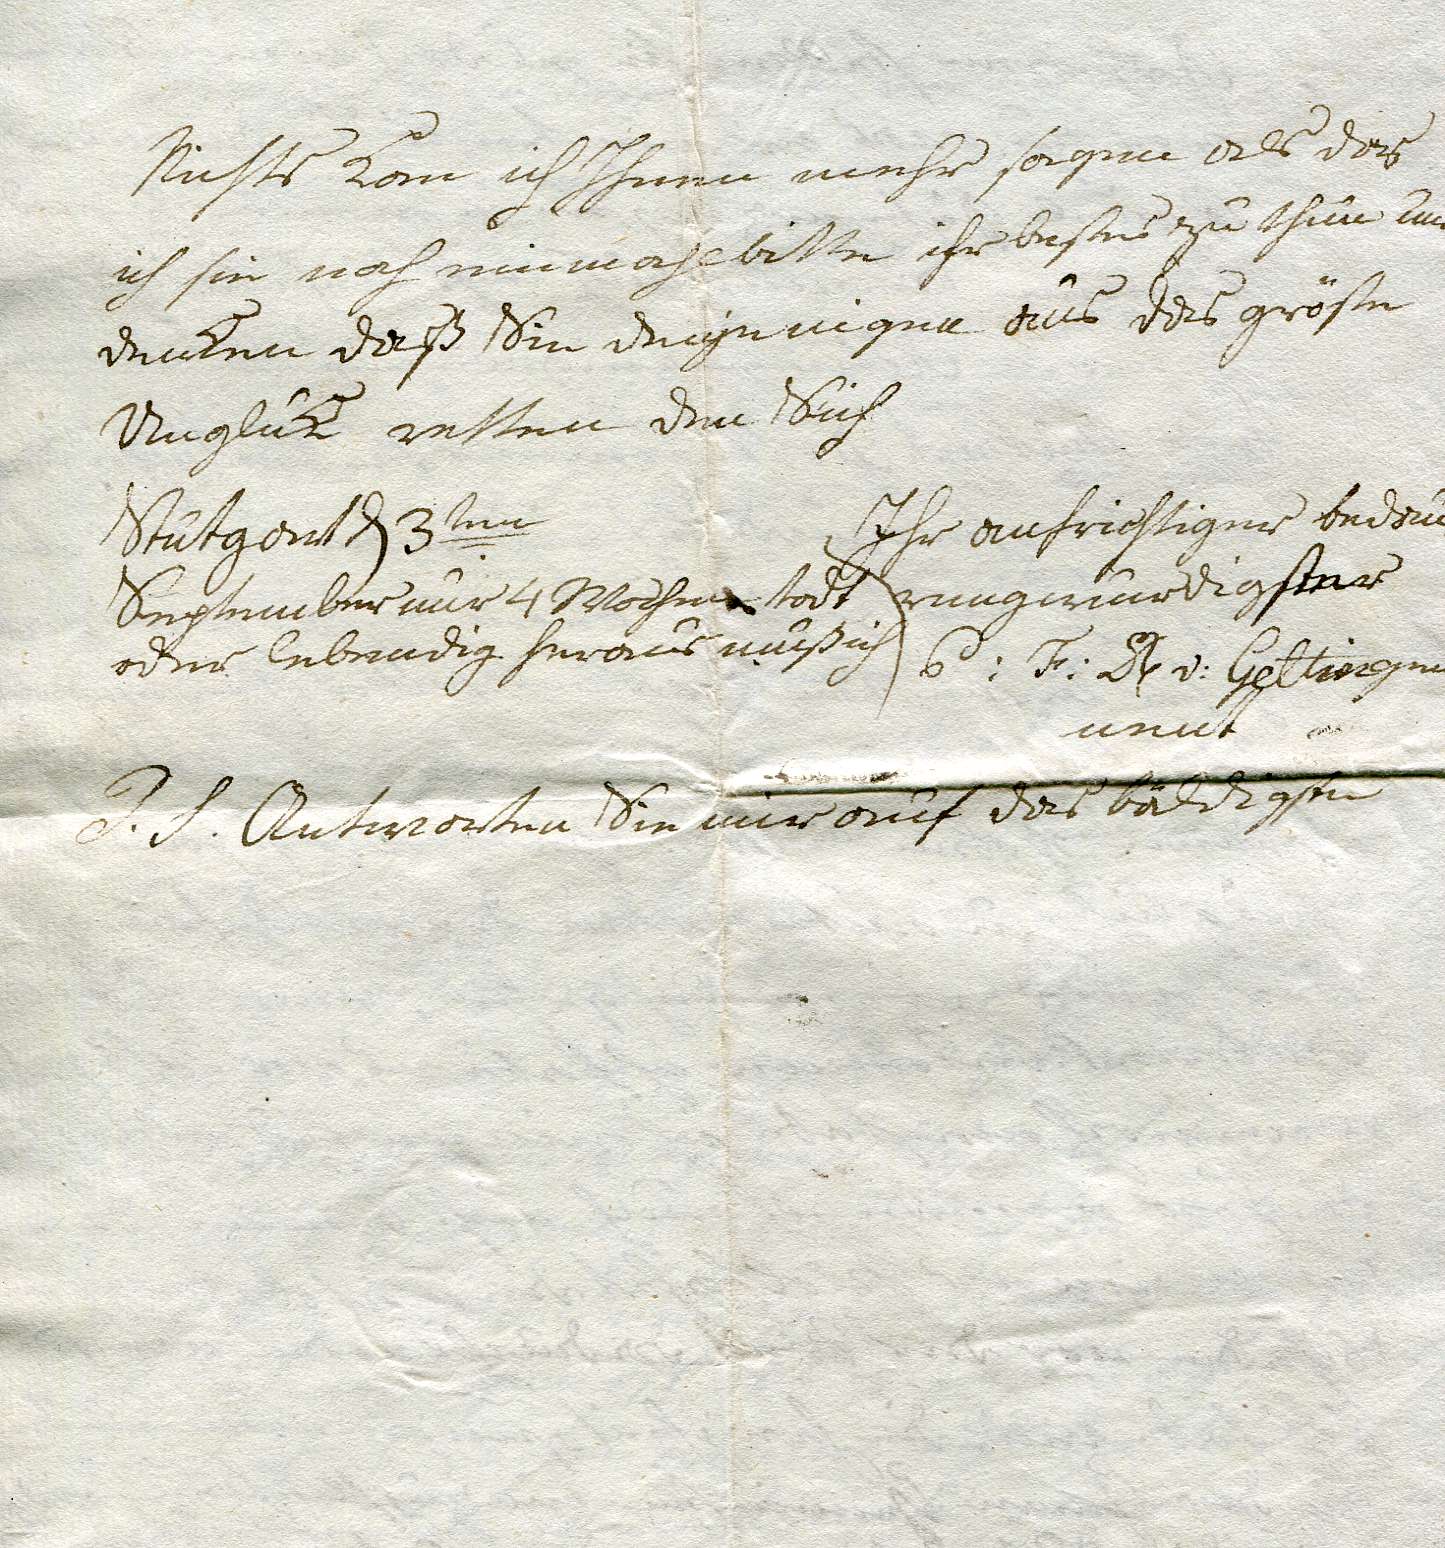 Nichts kan ich Ihnen mehr sagen als das
ich sie noch einmahl bitte ihr bestes zu thun un
denken daß Sie denjenigen aus das gröste
Unglük retten den Sich
Stutgart d 3ten
September nur 4 Wochen todt
oder lebendig heraus muß ich
Ihr aufrichtiger bedau
rungwürdigster
F: v:
nent
P. S. Antworten Sie mir auf das bäldigste